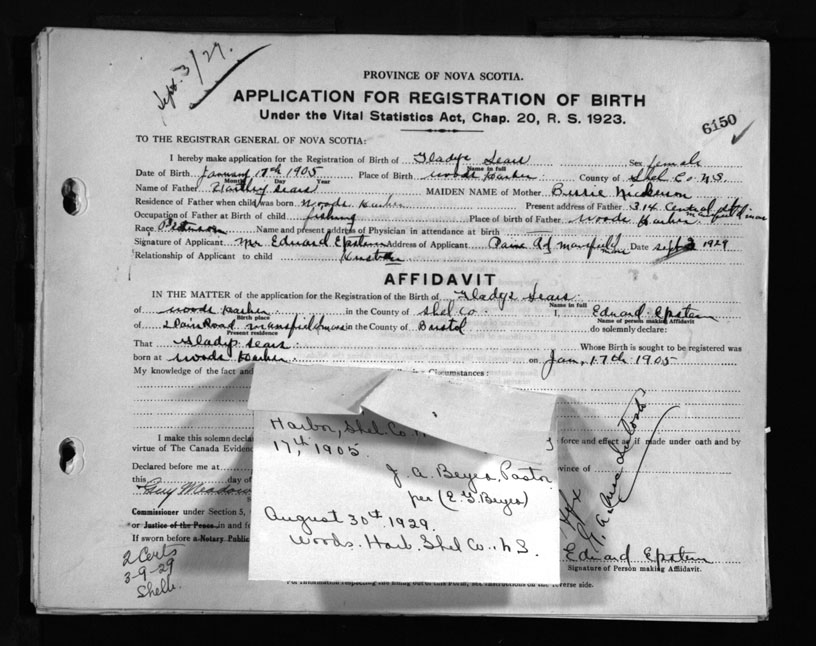 Sept. 3/29.
PROVINCE OF NOVA SCOTIA.
APPLICATION FOR REGISTRATION OF BIRTH
Under the Vital Statistics Act, Chap. 20, R. S. 1923.
6150
TO THE REGISTRAR GENERAL OF NOVA SCOTIA:
I hereby make application for the Registration of Birth of Gladys Sears Sex female
Name in full
Date of Birth January 17th 1905 Place of Birth Woods Harbor County of Shel Co N.S.
Month Day Year
Name of Father Sears MAIDEN NAME of Mother Nickerson
Residence of Father when child was born Woods Harbor Present address of Father 314 Central
Occupation of Father at Birth of child fishing Place of birth of Father Woods Harbor
Race Name and present address of Physician in attendance at birth
Signature of Applicant Mr Edward Epstein Address of Applicant Mansfield Date Sept 3 1929
Relationship of Applicant to child
AFFIDAVIT
IN THE MATTER of the application for the Registration of the Birth of Gladys Sears
Name in full
of Woods Harbor in the County of Shel Co. I, Edward Epstein
Birth place Name of person making Affidavit
of Road Mansfield Mass in the County of Bristol do solemnly declare:
Present residence
That Gladys Sears Whose Birth is sought to be registered was
born at Woods Harbor on Jan, 17th 1905
My knowledge of the fact and Circumstances:
Harbor, Shel. Co.
17th 1905.
J. A. Beyea, Pastor
per (E. G. Beyea)
August 30th 1929.
Woods. Harb. Shel Co. N S.
I make this solemn decla force and effect as if made under oath and by
virtue of The Canada Evidenc
Declared before me at vince of
this day of
Guy
Commissioner under Section 5,
or Justice of the Peace in and f
If sworn before a Notary Public
Edward Epstein
Signature of Person making Affidavit.
2 Certs
3-9-29
Shelb.
For information respecting the filling out of this Form, see instructions on the reverse side.